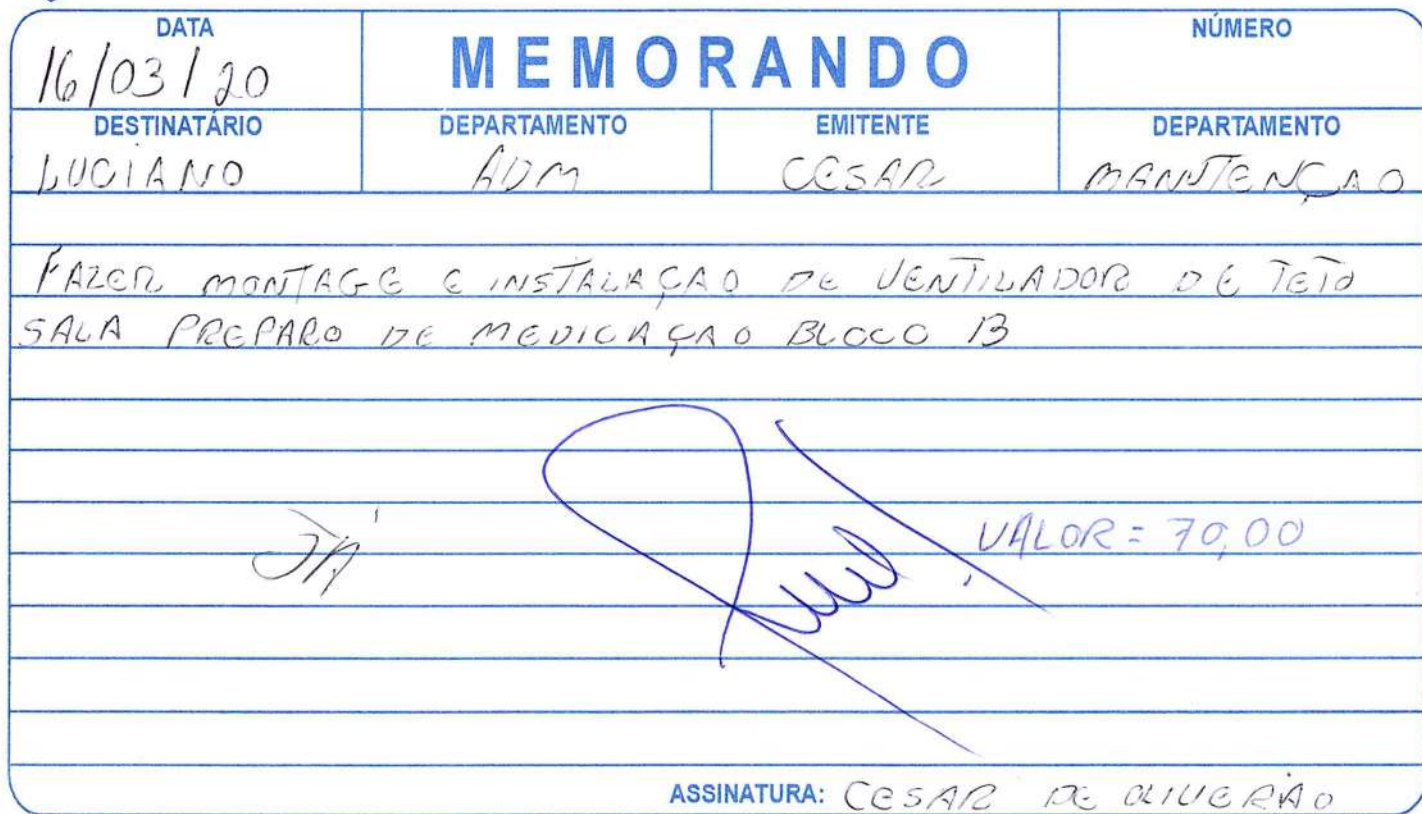 DATA
16/03/20
MEMORANDO
NÚMERO
DESTINATÁRIO
LUCIANO
DEPARTAMENTO
ADM
EMITENTE
CESAR
DEPARTAMENTO
MANUTENÇAO
FAZER MONTAGE E INSTALAÇAO DE VENTILADOR DE TETO
SALA PREPARO DE MEDICAÇAO BLOCO B
JÁ
VALOR = 70,00
ASSINATURA: CESAR DE